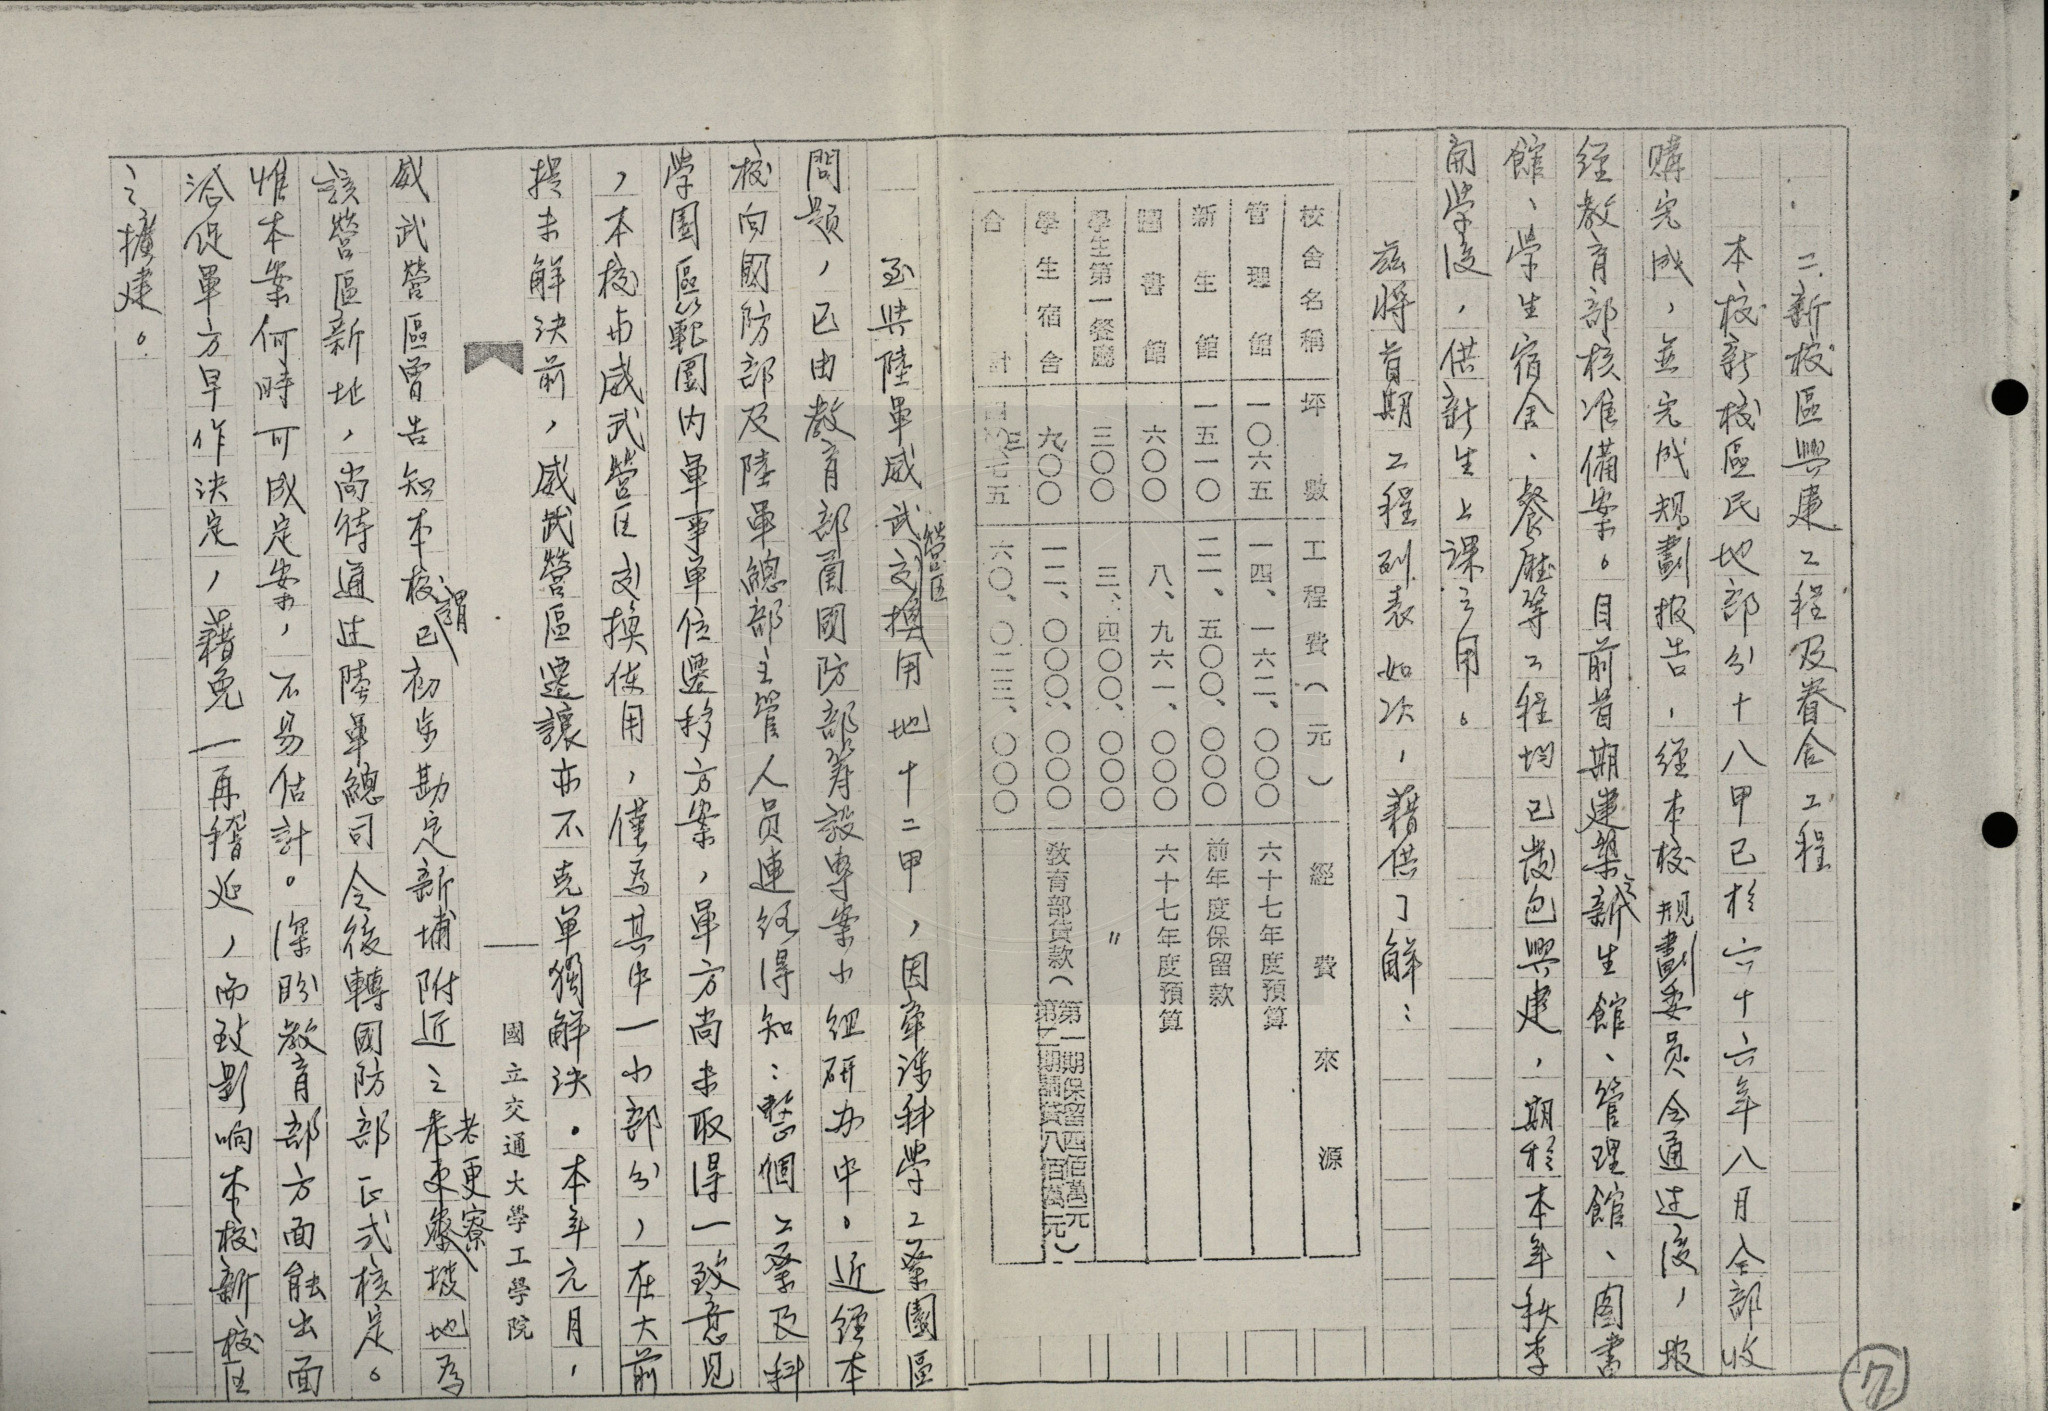 二、新校區興建工程及眷舍工程
本校新校區民地部分十八甲已於六十六年八月全部收
購完成，並完成規劃报告，經本校規劃委员会通过後，报
經教育部核准備案。目前首期建築之新生館、管理館、图書
館、学生宿舍、餐廳等工程均已發包興建，期於本年秋季
開学後，供新生上課之用。
茲將首期工程列表如次，藉供了解：
校舍名稱 坪數 工程費（元） 經費來源
管理館 一〇六五 一四、一六二、〇〇〇 六十七年度預算
新生館 一五一〇 二一、五〇〇、〇〇〇 前年度保留款
圖書館 六〇〇 八、九六一、〇〇〇 六十七年度預算
學生第一餐廳 三〇〇 三、四〇〇、〇〇〇 〃
學生宿舍 九〇〇 一二、〇〇〇、〇〇〇 教育部貸款（第一期保留四佰萬元 第二期請貸八佰萬元）
合計 四三七五 六〇、〇二三、〇〇〇
至與陸軍威武營区交換用地十二甲，因牽涉科學工業園區
問題，已由教育部商國防部籌設專案小組研办中。近經本
校向國防部及陸軍總部主管人员連絡得知：整個工業及科
学園區範圍内軍事單位遷移方案，軍方尚未取得一致意見
，本校与威武營区交換使用，僅為其中一小部分，在大前
提未解決前，威武營區遷讓亦不克單獨解決。本年元月，
國立交通大學工學院
威武營區曾告知本校謂已初步勘定新埔附近之老更寮坡地為
該營區新址，尚待通过陸軍總司令後轉國防部正式核定。
惟本案何時可成定案，不易估計。深盼教育部方面能出面
洽促軍方早作決定，藉免一再稽延，而致影响本校新校区
之擴建。
7